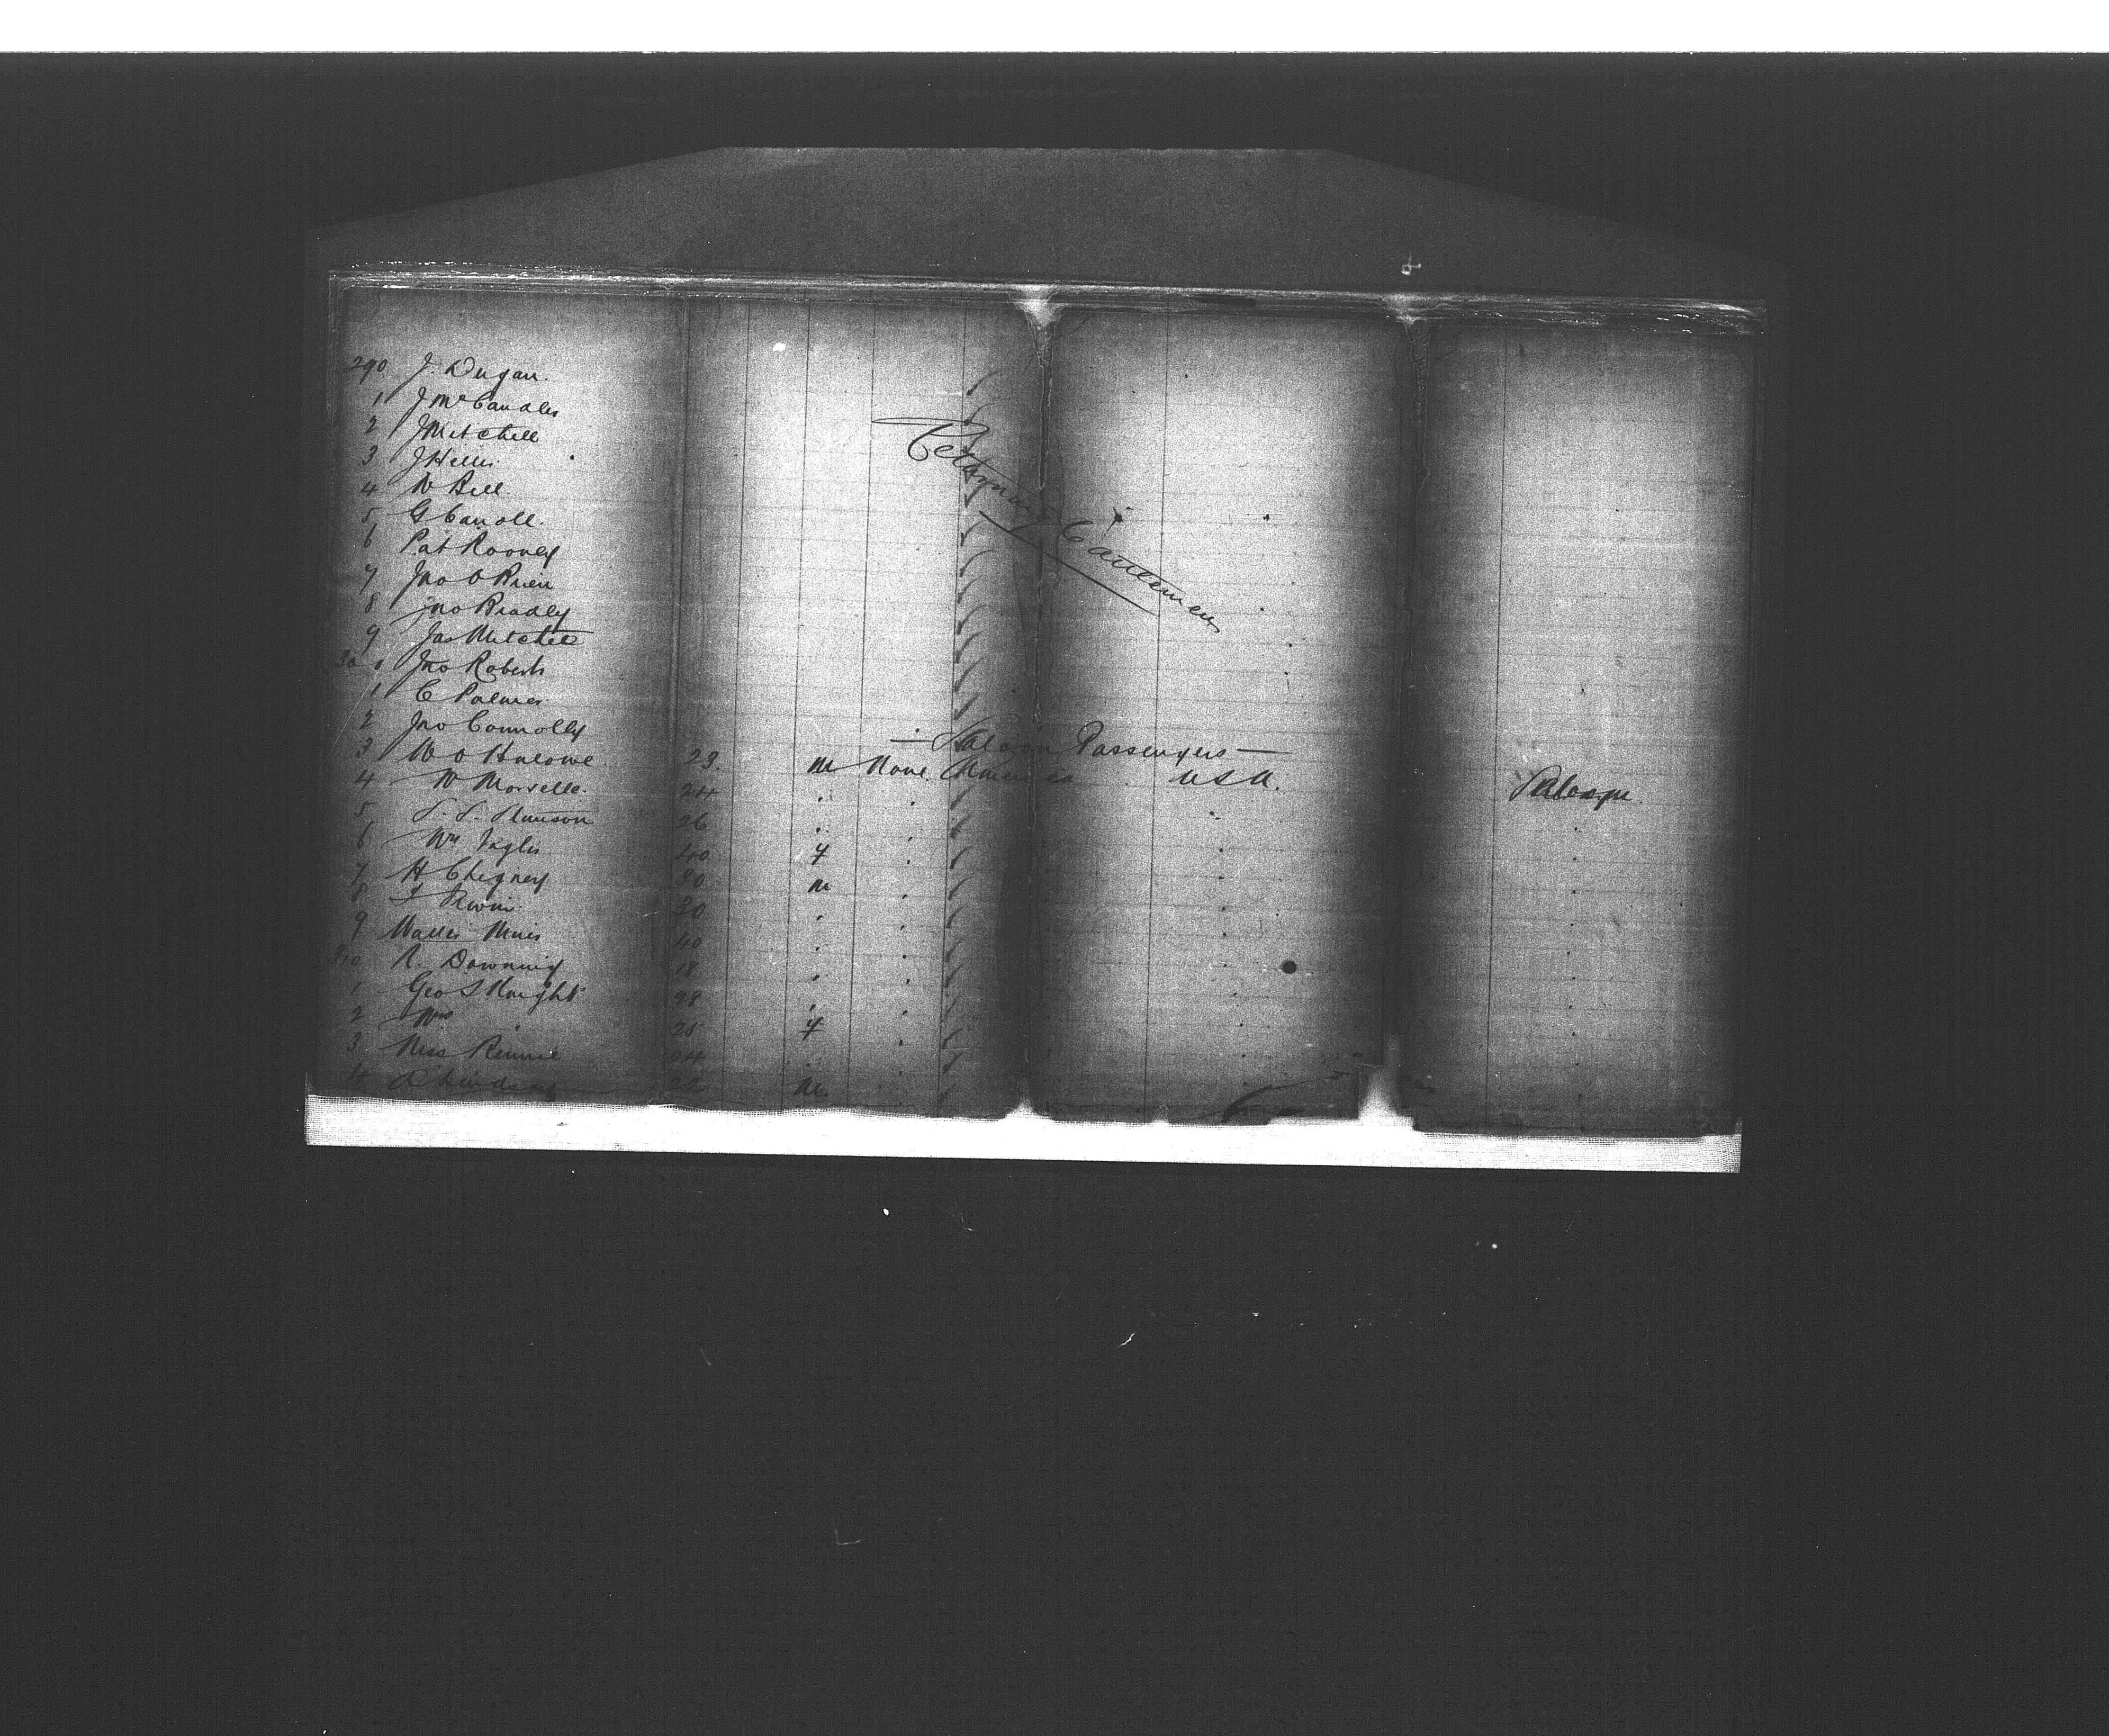 290 J. Dugan.
1 J McCandles
2 J Mitchell
3 J Hellis
4 W Bell
5 G Caroll.
6 Pat Rooney
7 Jno O Brien
8 Jno Bradley
9 Jas Mitchell
300 Jno Roberts
1 C Palmer
2 Jno Connolly
Returning Cattlemen
— Saloon Passengers —
3 W O 23. m None America U S A.
4 W Morvelle. 24 " " Saloon.
5 S. S. 26 " "
6 Mrs 40 f "
7 H Chegney 30 m "
8 Irwin 30 " "
9 Muir 40 " "
310 R. Downing 18 " "
1 Geo S Knight 28 " "
2 Mrs " 25 f "
3 Miss Rennie 24 " "
4 A Lindsay 22 m "